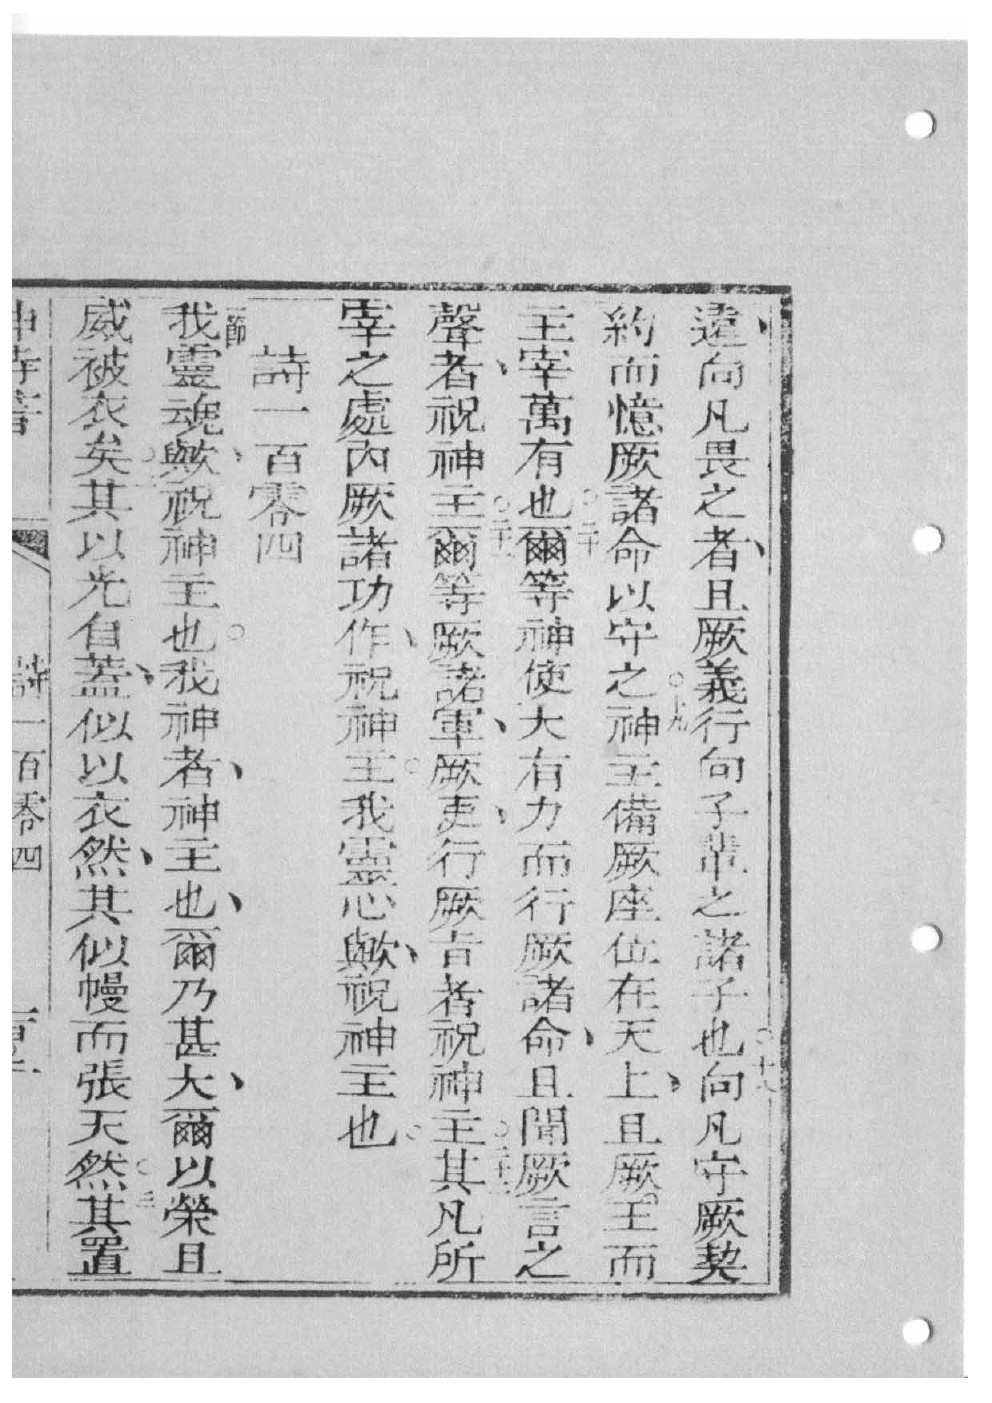 遠向凡畏之者、且厥義行向子輩之諸子也。十八向凡守厥契
約而憶厥諸命以守之。十九神主備厥座位在天上、且厥王而
主宰萬有也。二十爾等神使大有力而行厥諸命、且聞厥言之
聲者、祝神主。二十一爾等厥諸軍、厥吏、行厥旨者祝神主。二十二其凡所
宰之處內厥諸功作、祝神主。我靈心歟、祝神主也。
詩一百零四
一節我靈魂歟、祝神主也。我神者、神主也、爾乃甚大、爾以榮且
威被衣矣。二其以光自蓋、似以衣然、其似幔而張天然。三其置
神詩書 詩一百零四